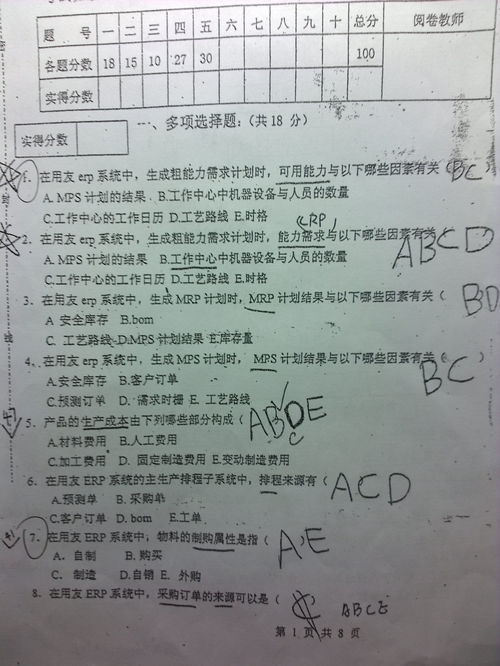 题 号 一 二 三 四 五 六 七 八 九 十 总分 阅卷教师
各题分数 18 15 10 27 30 100
实得分数
实得分数
一、多项选择题:(共18 分)
1. 在用友 erp 系统中，生成粗能力需求计划时，可用能力与以下哪些因素有关（ BC
A. MPS 计划的结果 B.工作中心中机器设备与人员的数量
C.工作中心的工作日历 D.工艺路线 E.时格
CRP
2. 在用友 erp 系统中，生成粗能力需求计划时，能力需求与以下哪些因素有关（ ABCD
A. MPS 计划的结果 B.工作中心中机器设备与人员的数量
C.工作中心的工作日历 D.工艺路线 E.时格
3. 在用友 erp 系统中，生成 MRP 计划时，MRP 计划结果与以下哪些因素有关（ BD
A 安全库存 B.bom
C. 工艺路线 D.MPS 计划结果 E.库存量
4. 在用友 erp 系统中，生成 MPS 计划时， MPS 计划结果与以下哪些因素有关（ BC
A.安全库存 B.客户订单
C.预测订单 D. 需求时栅 E. 工艺路线
5. 产品的生产成本由下列哪些部分构成（ ABDE
C
A.材料费用 B.人工费用
C.加工费用 D. 固定制造费用 E.变动制造费用
6. 在用友 ERP 系统的主生产排程子系统中，排程来源有（ ACD
A.预测单 B. 采购单
C.客户订单 D. bom E.工单
7. 在用友 ERP 系统中，物料的制购属性是指（ AE
A. 自制 B. 购买
C. 制造 D.自销 E. 外购
8. 在用友 ERP 系统中，采购订单的来源可以是（ ABCE
第 1 页 共 8 页